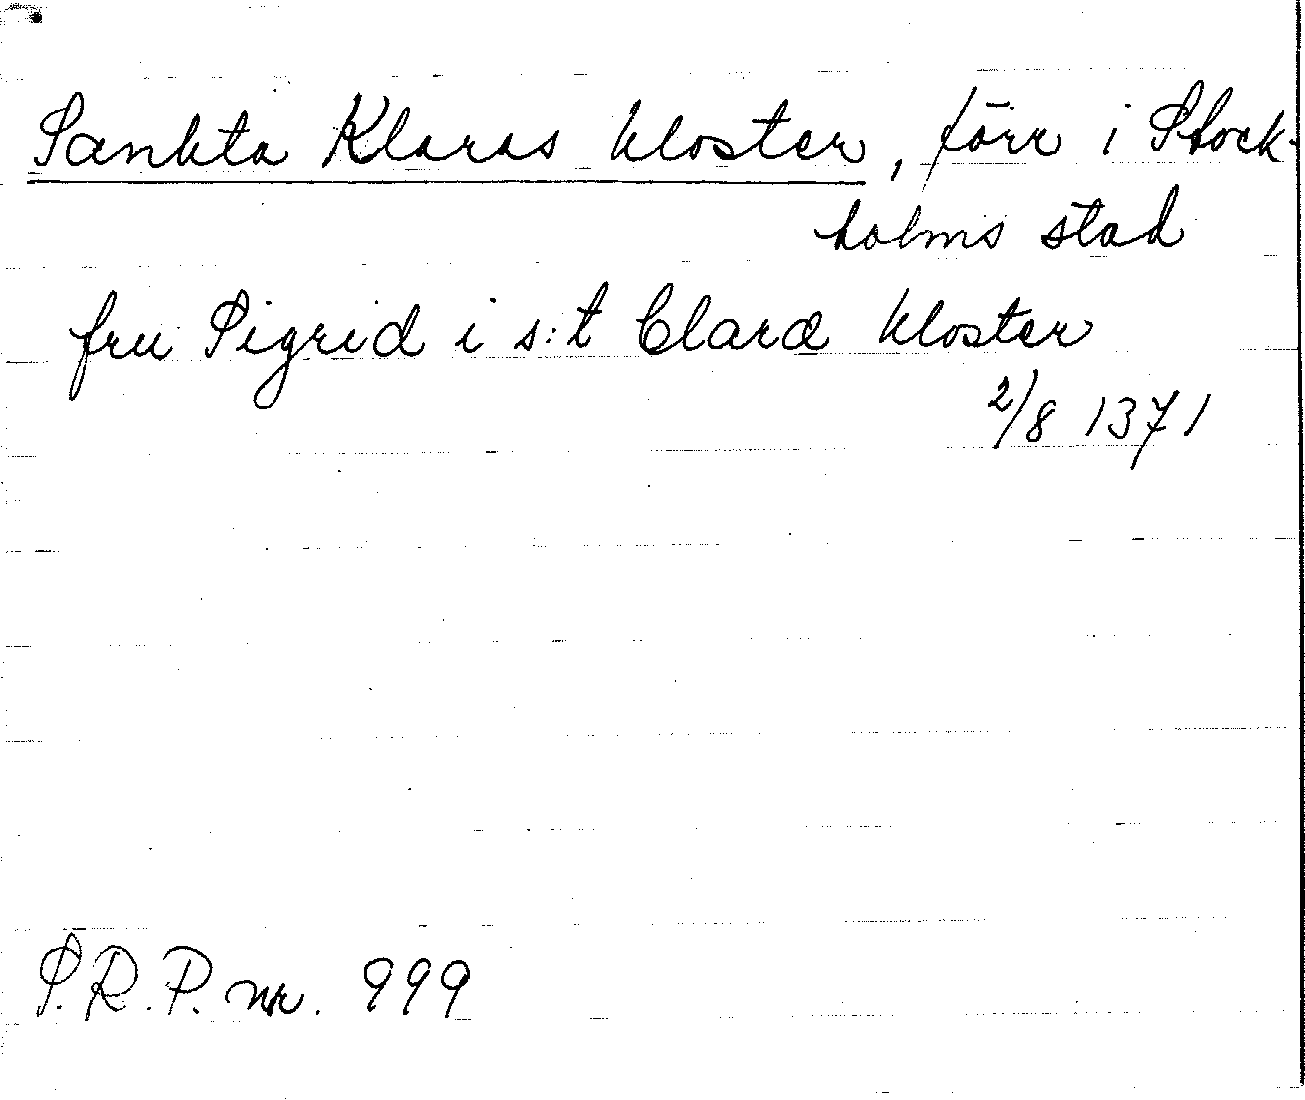 Sankta Klaras kloster, förr i Stock-
holms stad
fru Sigrid i s:t Claræ kloster
2/8 1371
S.R.P. nr. 999